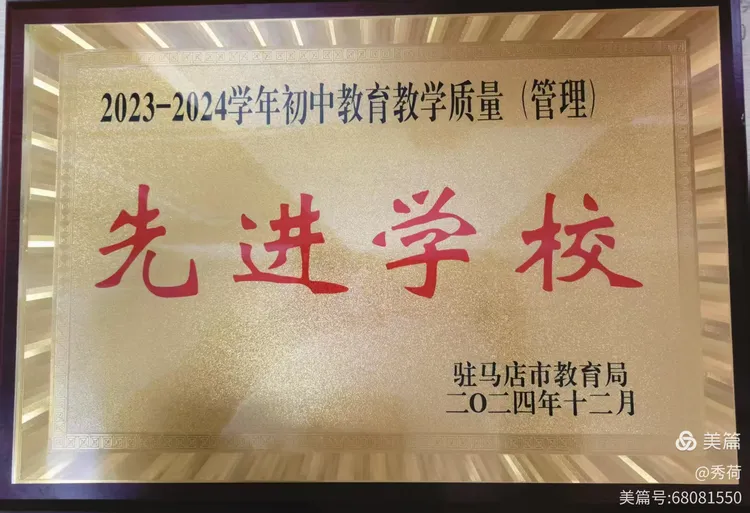 2023-2024学年初中教育教学质量（管理）
先进学校
驻马店市教育局
二〇二四年十二月
美篇
@秀荷
美篇号:68081550